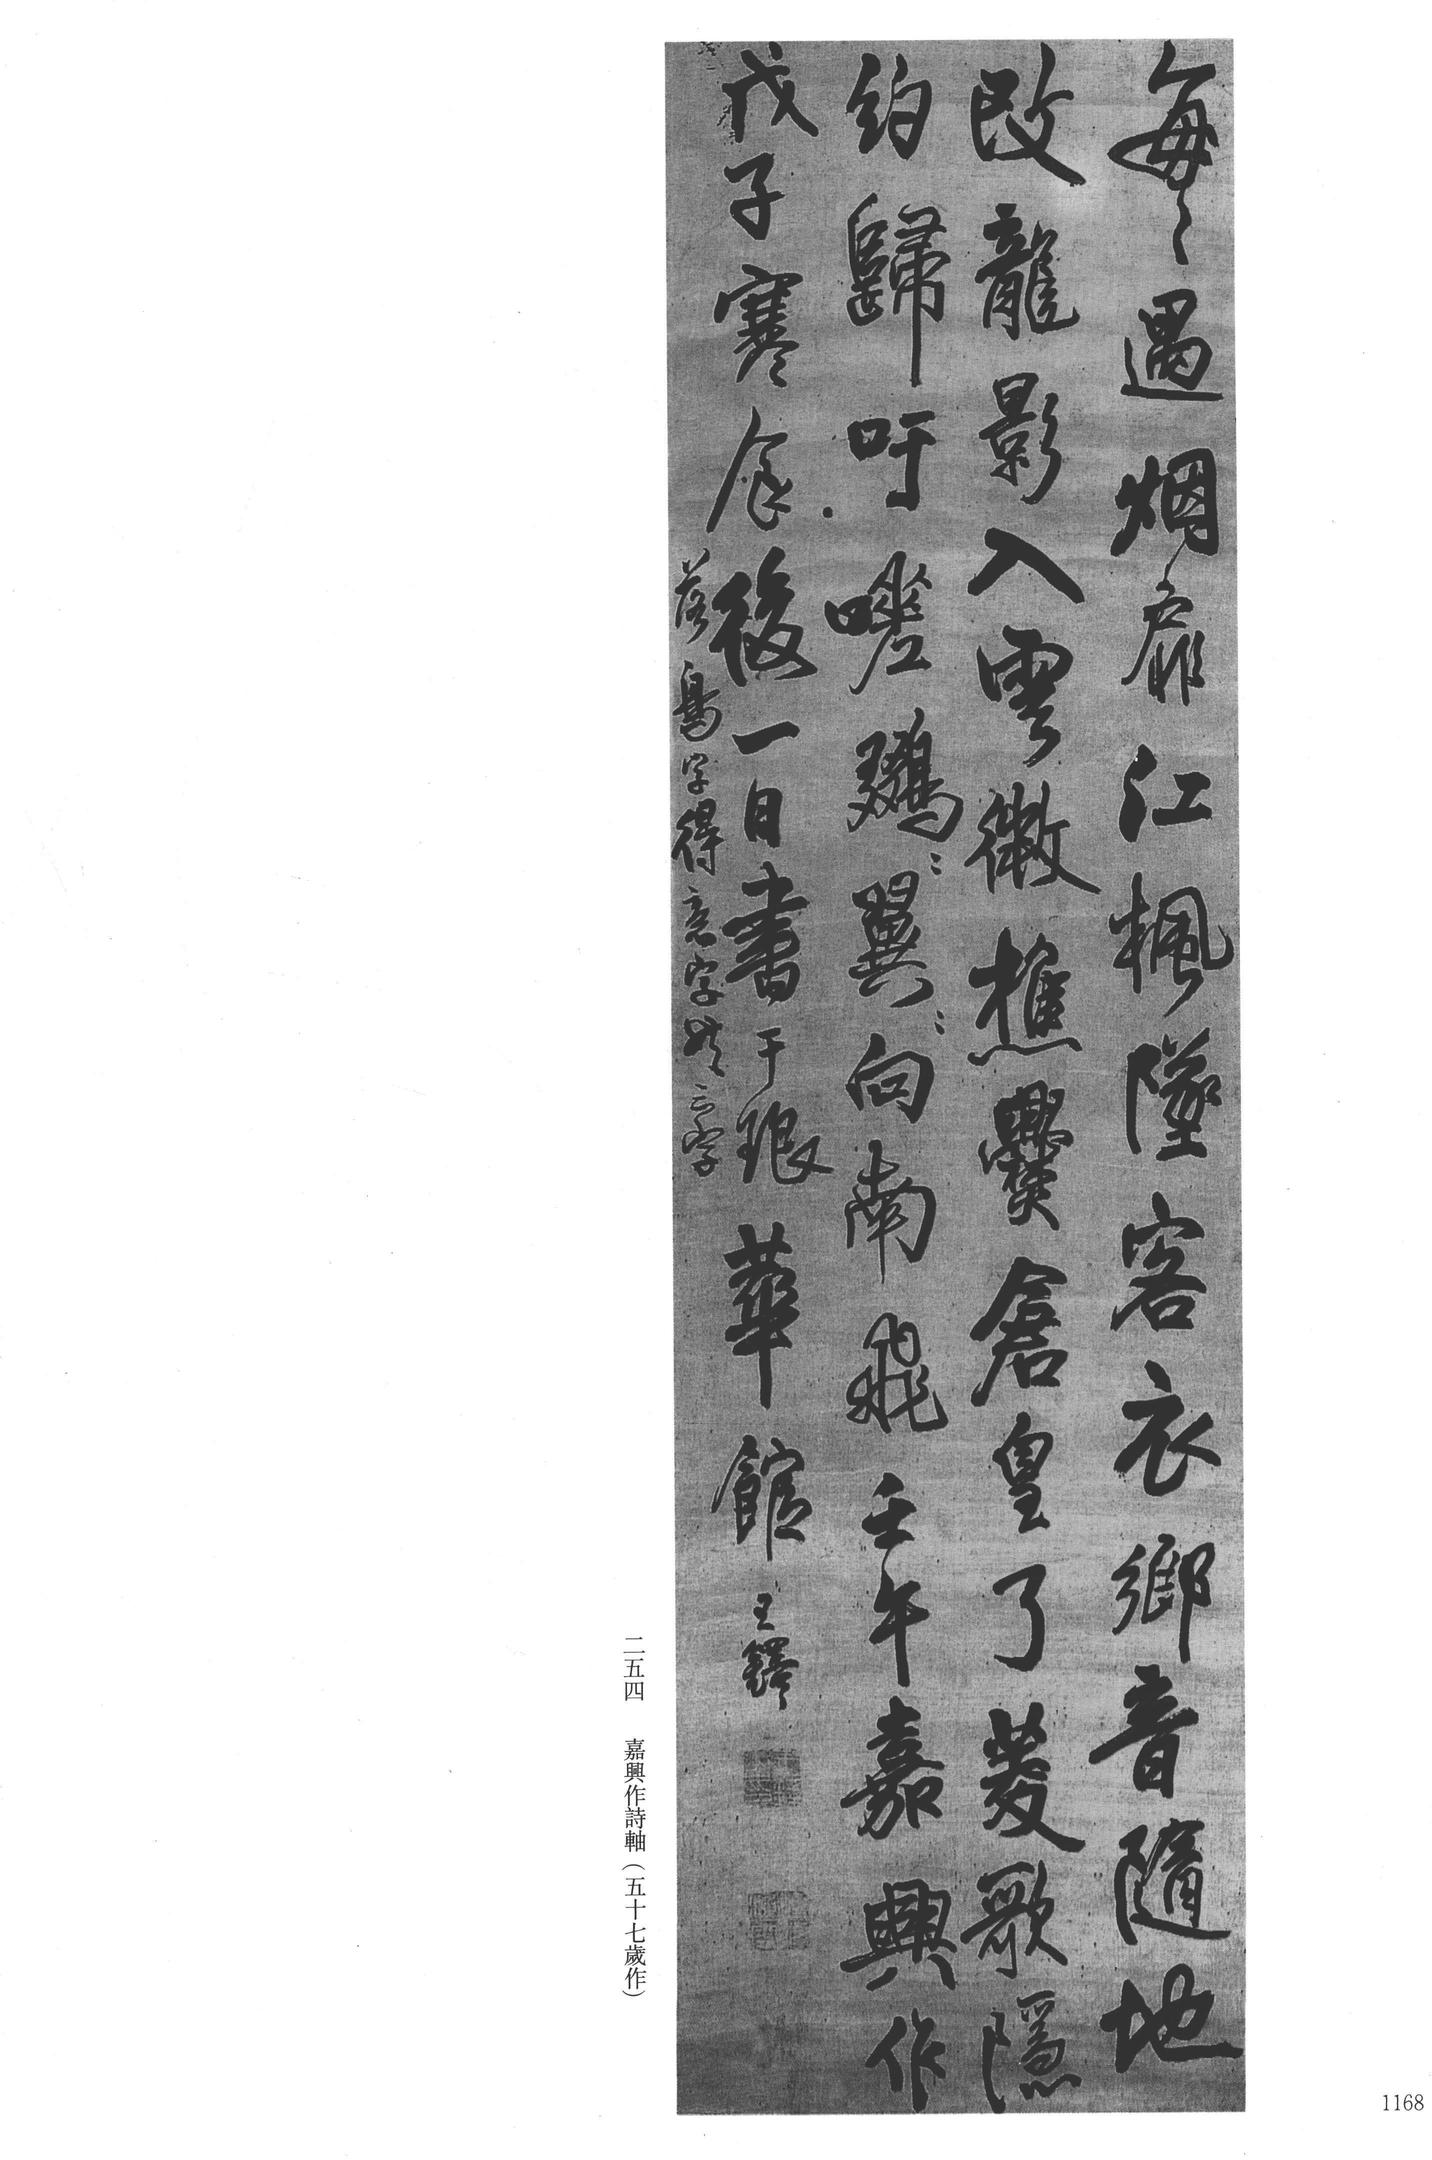 每々遇烟扉江楓墜客衣鄉音隨地
改龍影入雲微樵爨倉皇了菱歌隱
約歸吁嗟鵝〻翼〻向南飛壬午嘉興作
戊子寒食後一日書于琅華館王鐸
落烏字得意字
二五四　嘉興作詩軸（五十七歲作）
1168